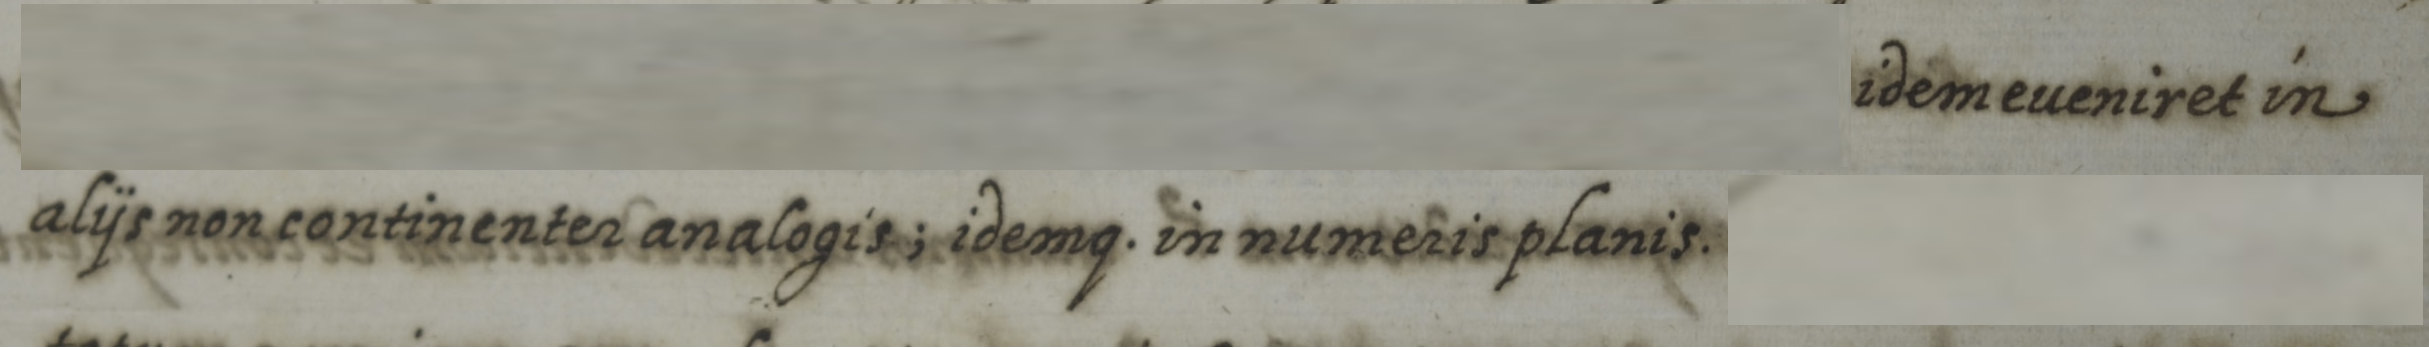 idem eueniret in
alijs non continenter analogis; idemq. in numeris planis.